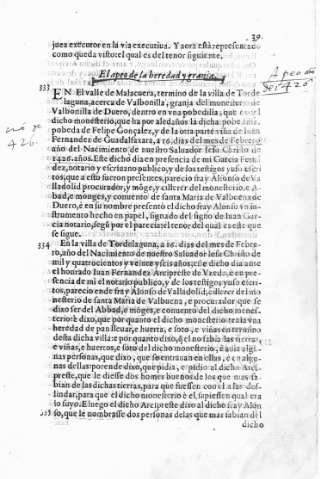 39
juez executor en la via executiua. Y aora està representado
como queda visto: el qual es del tenor siguiente.
El apeo de la heredad y grania.
Apeo año
de 1426
333 EN El valle de Malacuera, termino de la villa de Torde
laguna, acerca de Valbonilla, granja del monesterio de
Valbonilla de Duero, dentro en vna pobedilla, que es del
dicho monesterio, que ha por aledaños la dicha pobeda
pobeda de Felipe Gonçalez, y de la otra parte viña de Iuan
Fernandez de Guadalfaxara, a 10. dias del mes de Febrero
año del Nacimiento de nuestro Saluador Iesu Christo de
1426. años. Este dicho dia en presencia de mi Garcia Fernan
dez, notario y escriuano publico, y de los testigos yuso escri
tos, que a esto fueron presentes, parecio fray Alfonso de Va
lladolid procurador, y mõge, y cillerer del monesterio, e A-
bad, e monges, y conuento de santa Maria de Valbuena de
Duero, è en su nombre presentò el dicho fray Alfonso vn in-
strumento hecho en papel, signado del signo de Iuan Gar-
cia notario, segũ por el parecia: el tenor del qual es este que
se sigue.
334 En la villa de Tordelaguna, a 10. dias del mes de Febre-
ro, año del Nacimiento de nuestro Saluador Iesu Christo de
mil y quatrocientos y veinte y seis años, este dicho dia ante
el honrado Iuan Fernandez Arcipreste de Vzeda, è en pre-
sencia de mi el notario publico, y de los testigos yuso escri-
tos, parecio ende fray Alonso de Valladolid, cillerer del mo
nesterio de santa Maria de Valbuena, e procurador que se
dixo ser del Abbad, e monges, e conuento del dicho mones-
terio: è dixo, que por quanto el dicho monesterio tenia vna
heredad de pan lleuar, e huerta, e soto, e viñas en termino
desta dicha villa: e por quanto dixo, q̃ el no sabia las tierras,
e viñas, e huertos, e soto del dicho monesterio, e auia algu-
nas personas, que dixo, que se entrauan en ellas, è en algu-
nas dellas: por ende dixo, que pidia, e pidio al dicho Arci-
preste, que le diesse dos homes buenos de los que mas sa-
bian de las dichas tierras, para que fuessen con el a las des-
lindar, para que el dicho monesterio è el, supiessen qual era
lo suyo. E luego el dicho Arcipreste dixo al dicho fray Alon
335 so, que le nombrasse dos personas de las que mas sabian del
dicho